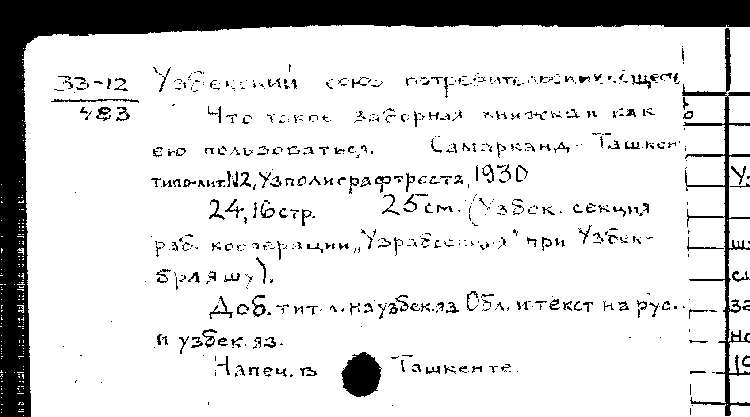 33-12 Узбекский союз потребительских обществ
483 Что такое заборная книжка и как
ею пользоваться. Самарканд-Ташкен
типо-лит. N2, Узполиграфтреста, 1930
24, 16 стр. 25 см. (Узбек. секция
раб. кооперации „Узрабсекция" при Узбек-
бряяшу).
Доб. тит. л. на узбек. яз. Обл. и текст на рус.
и узбек. яз.
Напеч. в Ташкенте.